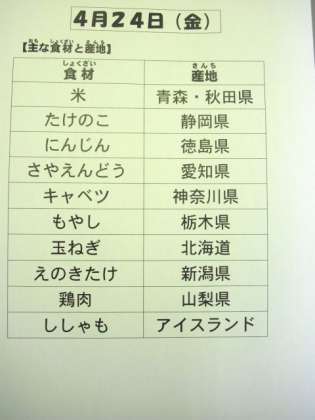 4月24日（金）
【主な食材と産地】
食材 産地
米 青森・秋田県
たけのこ 静岡県
にんじん 徳島県
さやえんどう 愛知県
キャベツ 神奈川県
もやし 栃木県
玉ねぎ 北海道
えのきたけ 新潟県
鶏肉 山梨県
ししゃも アイスランド